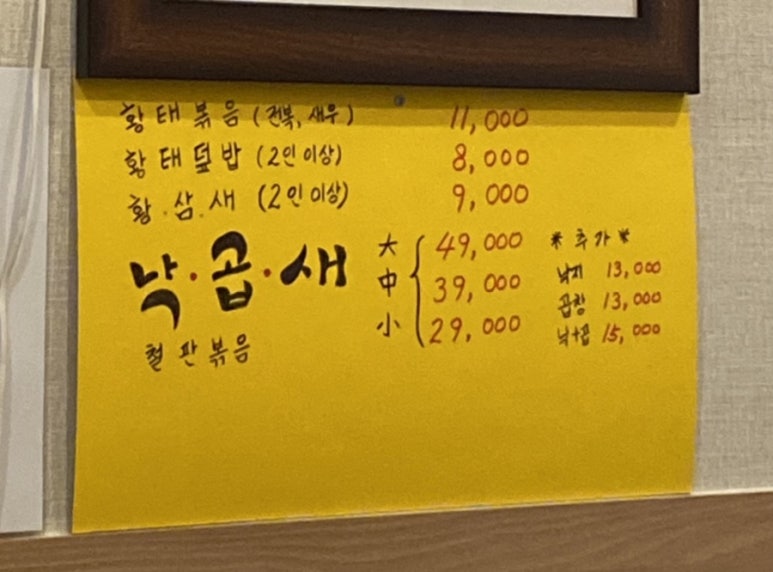 황태볶음 (전복, 새우) 11,000
황태덮밥 (2인 이상) 8,000
황.삼.새 (2인 이상) 9,000
낙·곱·새
철판볶음
大 49,000
中 39,000
小 29,000
* 추가 *
낙지 13,000
곱창 13,000
낙+곱 15,000